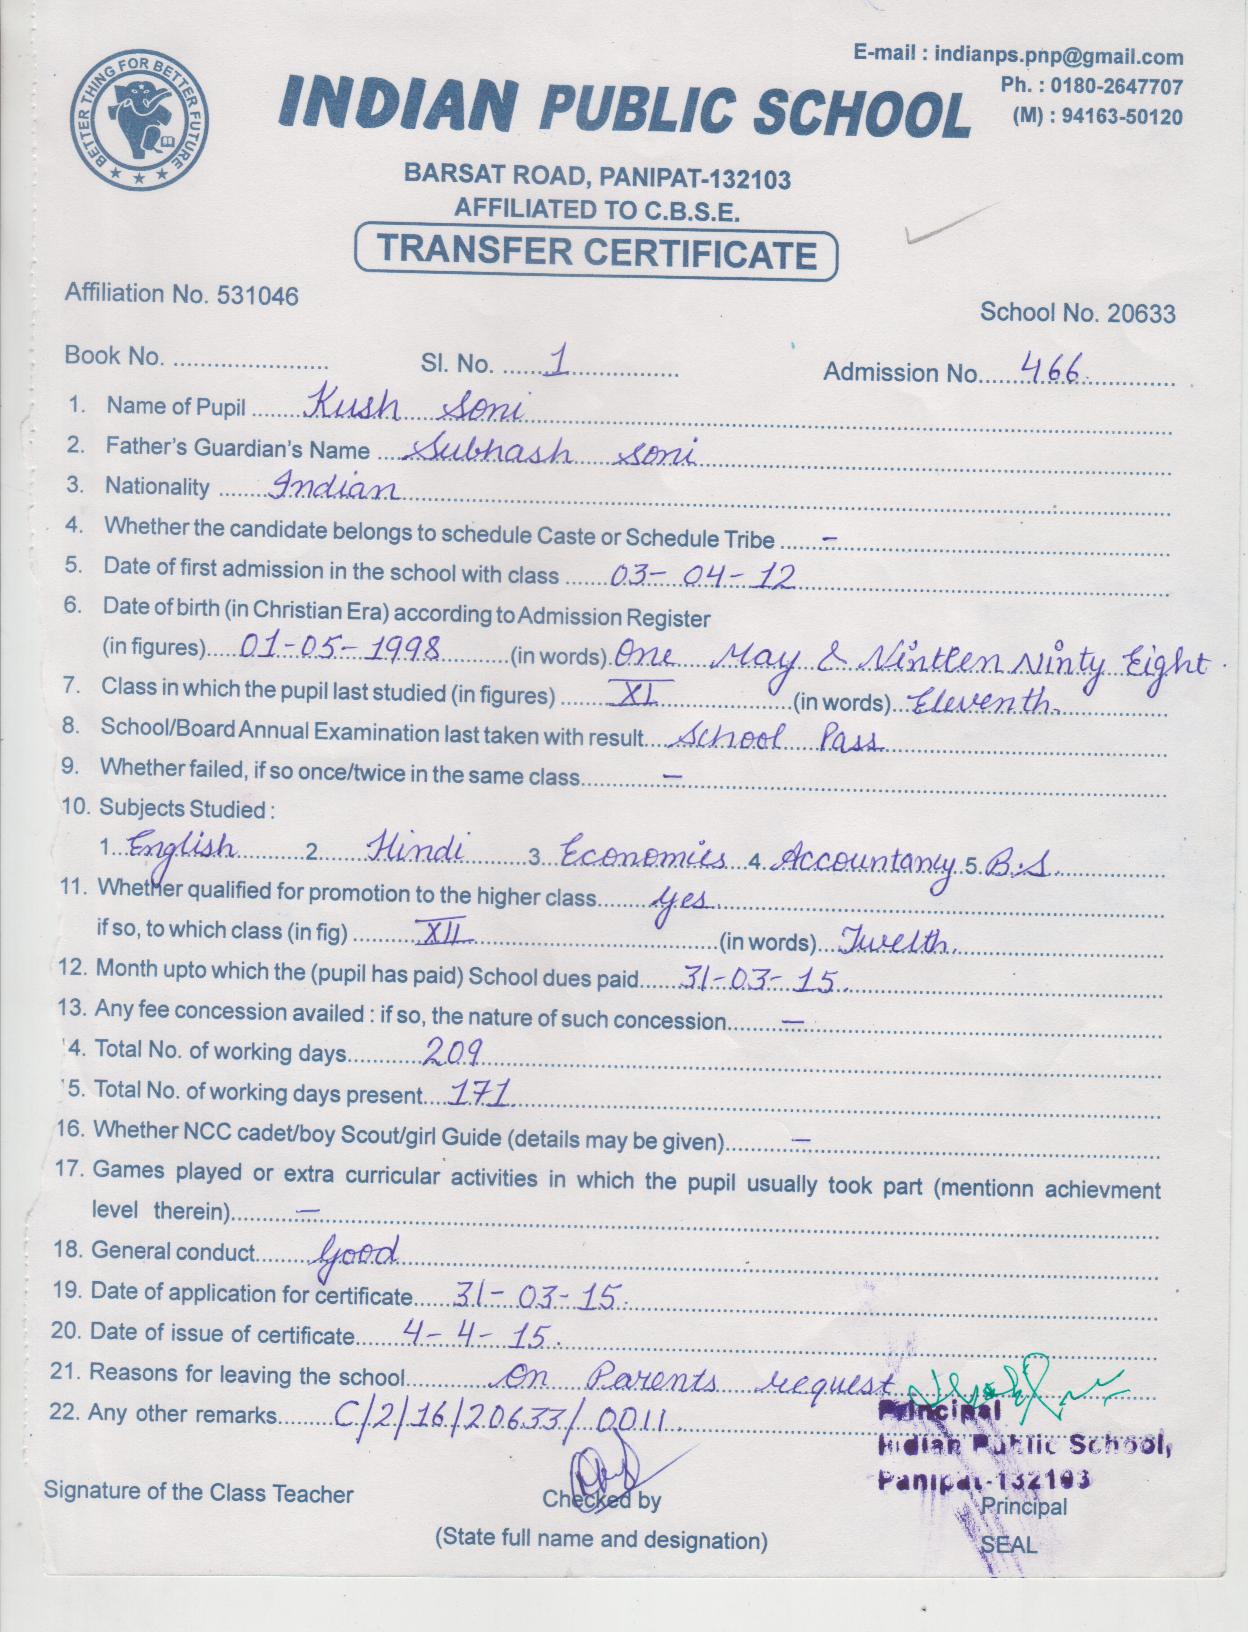 E-mail : indianps.pnp@gmail.com
Ph. : 0180-2647707
(M) : 94163-50120
BETTER THING FOR BETTER FUTURE
INDIAN PUBLIC SCHOOL
BARSAT ROAD, PANIPAT-132103
AFFILIATED TO C.B.S.E.
TRANSFER CERTIFICATE
Affiliation No. 531046
School No. 20633
Book No. Sl. No. 1 Admission No. 466
1. Name of Pupil Kush Soni
2. Father's Guardian's Name Subhash Soni
3. Nationality Indian
4. Whether the candidate belongs to schedule Caste or Schedule Tribe –
5. Date of first admission in the school with class 03-04-12
6. Date of birth (in Christian Era) according to Admission Register
(in figures) 01-05-1998 (in words) One May & Nintten Ninty Eight
7. Class in which the pupil last studied (in figures) XI (in words) Eleventh
8. School/Board Annual Examination last taken with result School Pass
9. Whether failed, if so once/twice in the same class –
10. Subjects Studied :
1. English 2. Hindi 3. Economics 4. Accountancy 5. B.S.
11. Whether qualified for promotion to the higher class yes
if so, to which class (in fig) XII (in words) Twelth
12. Month upto which the (pupil has paid) School dues paid 31-03-15
13. Any fee concession availed : if so, the nature of such concession –
'4. Total No. of working days 209
'5. Total No. of working days present 171
16. Whether NCC cadet/boy Scout/girl Guide (details may be given) –
17. Games played or extra curricular activities in which the pupil usually took part (mentionn achievment
level therein) –
18. General conduct Good
19. Date of application for certificate 31-03-15
20. Date of issue of certificate 4-4-15
21. Reasons for leaving the school On Parents request
22. Any other remarks C/2/16/20633/0011
Principal
Indian Public School,
Panipat-132103
Signature of the Class Teacher Checked by Principal
(State full name and designation) SEAL